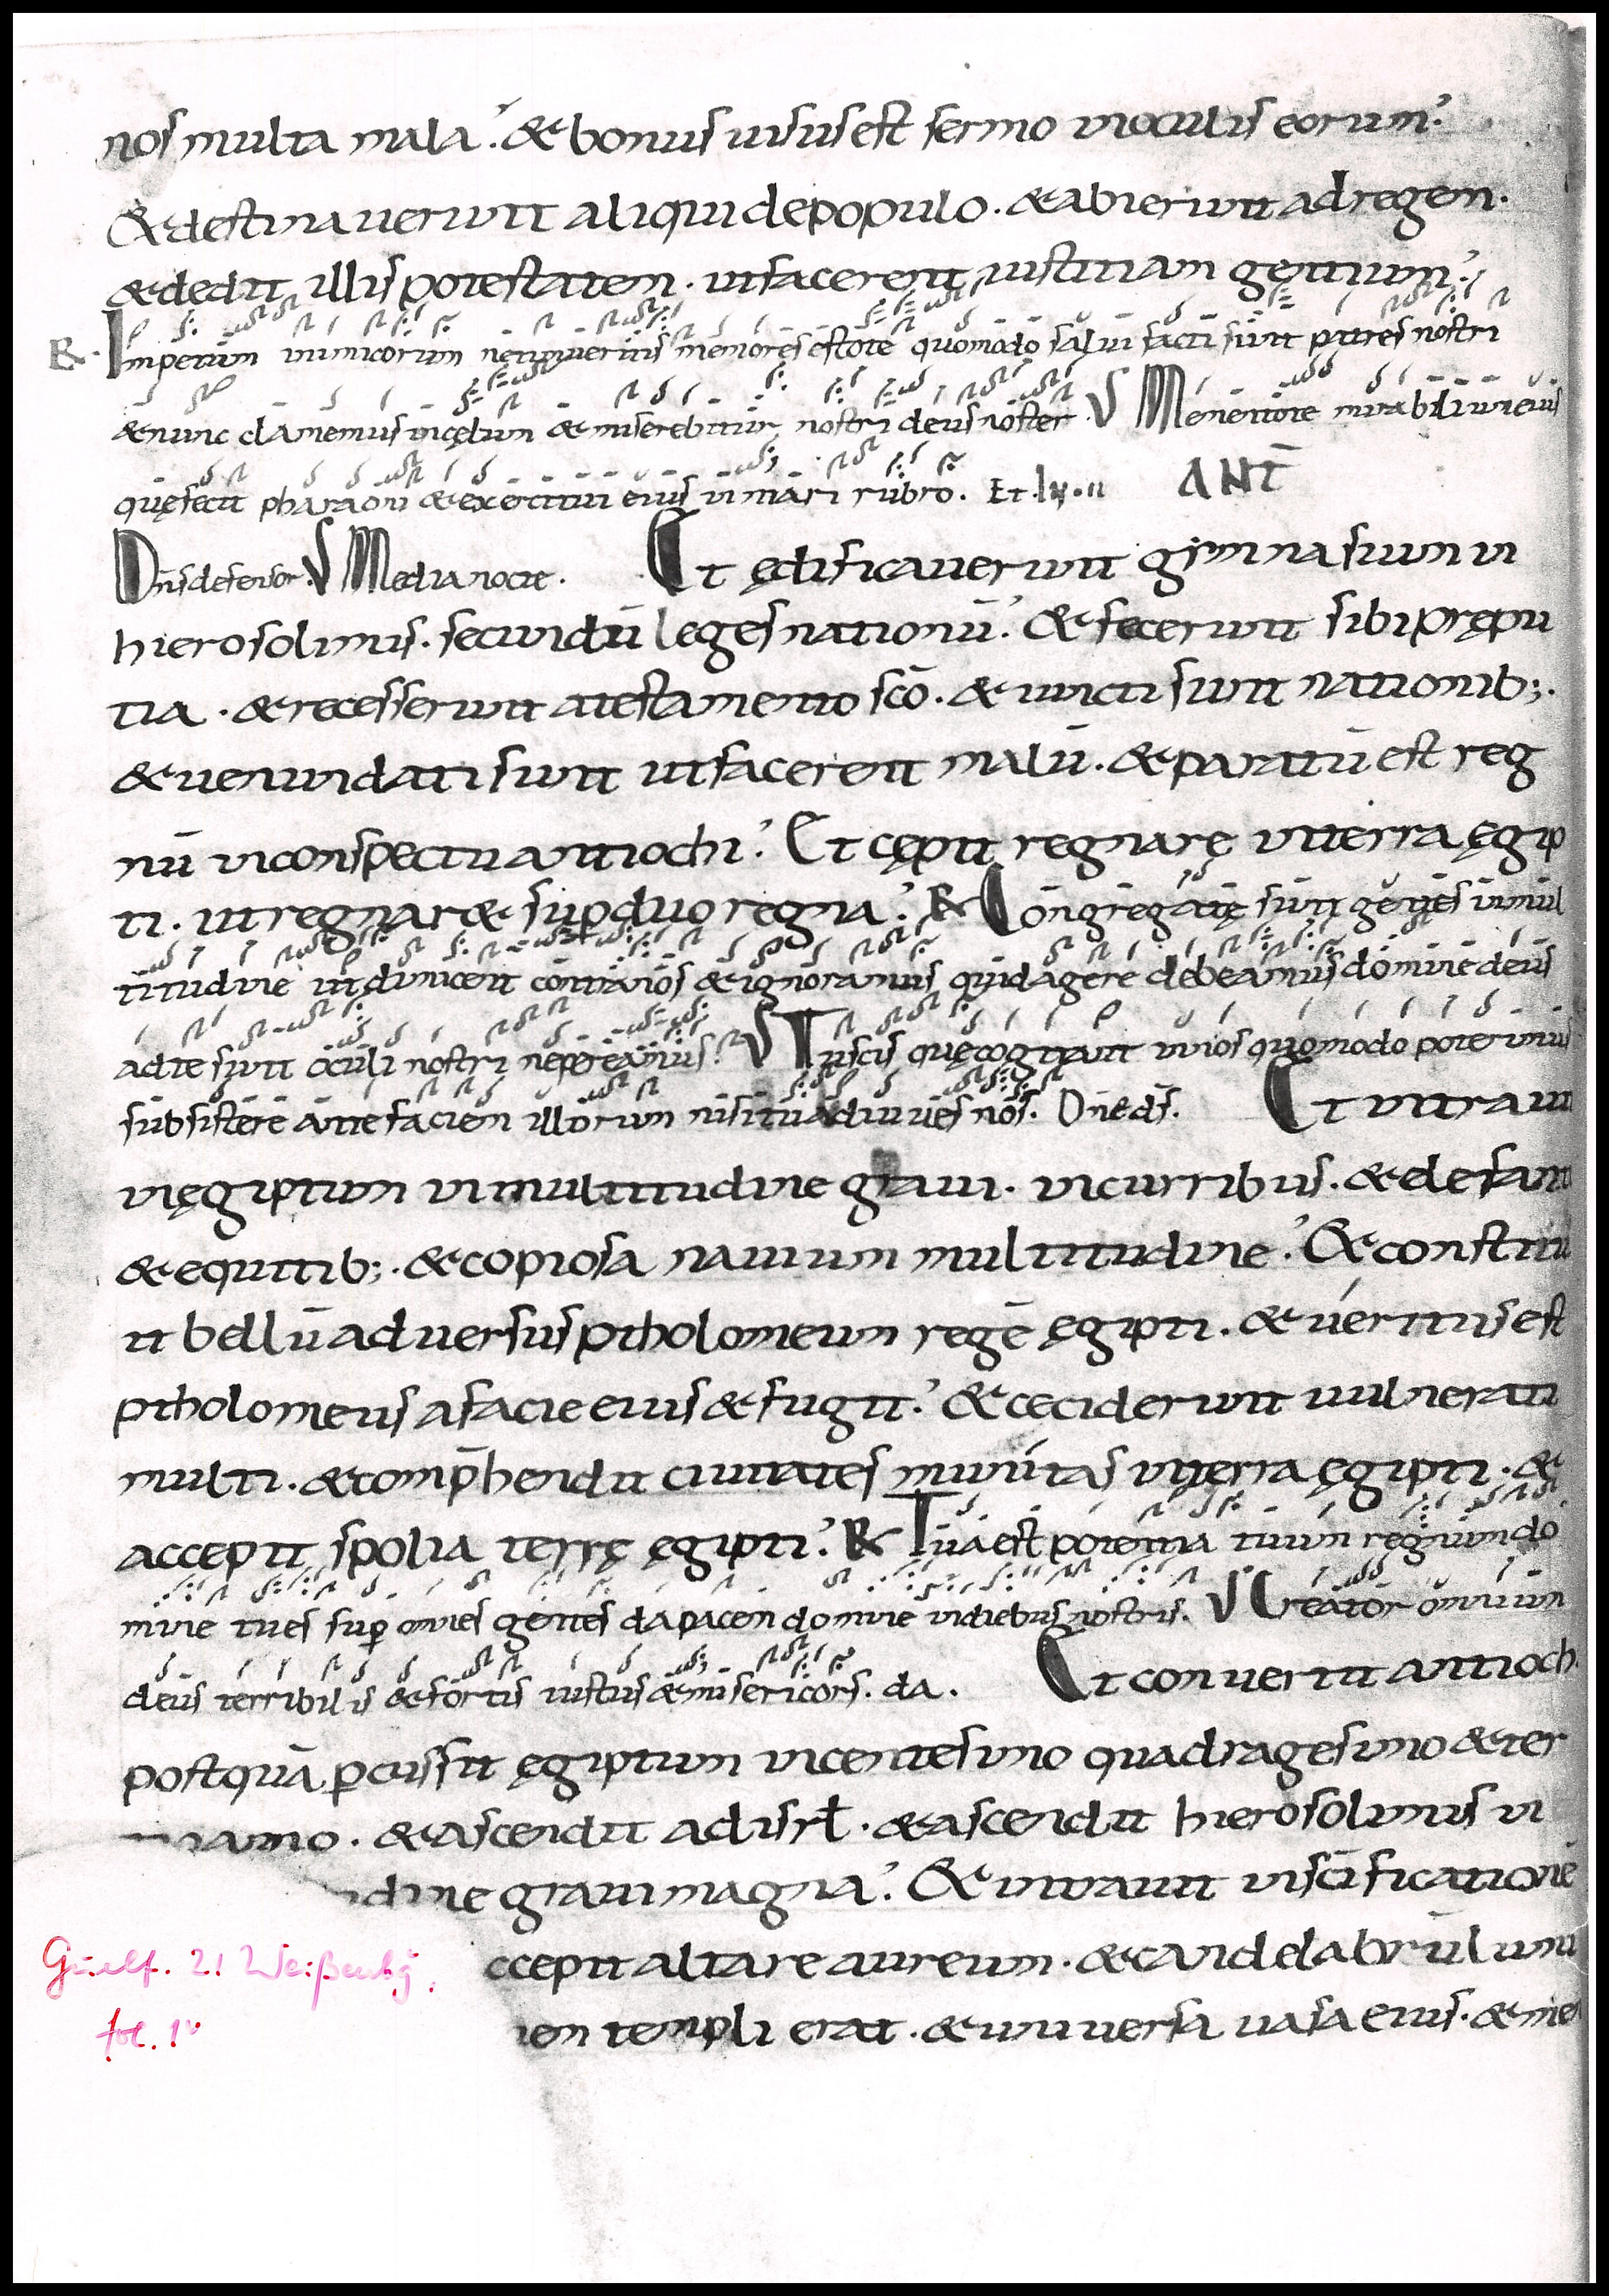 nos multa mala. & bonus uisus est sermo in oculis eorum.
& destinauerunt aliqui de populo. & abierunt ad regem.
& dedit illis potestatem. ut facerent iustitiam gentium.
R. Impetum inimicorum ne timueritis memores estote quomodo salui facti sunt patres nostri
& nunc clamemus in cęlum & miserebitur nostri deus noster V Mementote mirabilium eius
quę fecit pharaoni & exercitui eius in mari rubro. Et ANT̄
Dn̄s defensor. V Media nocte. Et ędificauerunt gimnasium in
hierosolimis. secundū leges nationū. & fecerunt sibi prępu
tia. & recesserunt a testamento sc̄o. & iuncti sunt nationib;.
& uenundati sunt ut facerent malū. & paratū est reg
nū in conspectu antiochi. Et cępit regnarę in terra ęgip
ti. ut regnar& sup duo regna. R Congregatę sunt gentes in mul
titudine ut dimicent contra nos & ignoramus quid agere debeamus domine deus
ad te sunt oculi nostri ne pereamus. V Tu scis quę cogitant in nos quomodo poterimus
subsistere ante faciem illorum nisi tu adiuues nos. Dn̄e ds̄. Et intrauit
in ęgiptum in multitudine graui. in curribus. & elefant
& equitib;. & copiosa nauium multitudine. & constitu
it bellū aduersus ptholomeum regē ęgipti. & ueritus est
ptholomeus a facie eius & fugit. & ceciderunt uulnerati
multi. & comp̄hendit ciuitates munitas in terra ęgipti. &
accepit spolia terrę ęgipti. R Tua est potentia tuum regnum do
mine tu es sup omnes gentes da pacem domine in diebus nostris. V Creator omnium
deus terribilis & fortis iustus & misericors. da. Et conuertit antioch
postquā pcussit ęgiptum in centesimo quadragesimo & ter
anno. & ascendit ad isrł. & ascendit hierosolimis in
dine graui magna. & intrauit in sc̄ificationē
ccepit altare aureum. & candelabrū lumi
templi erat. & uniuersa uasa eius. & me
Guelf. 21 Weißenbg.
fol. 1v